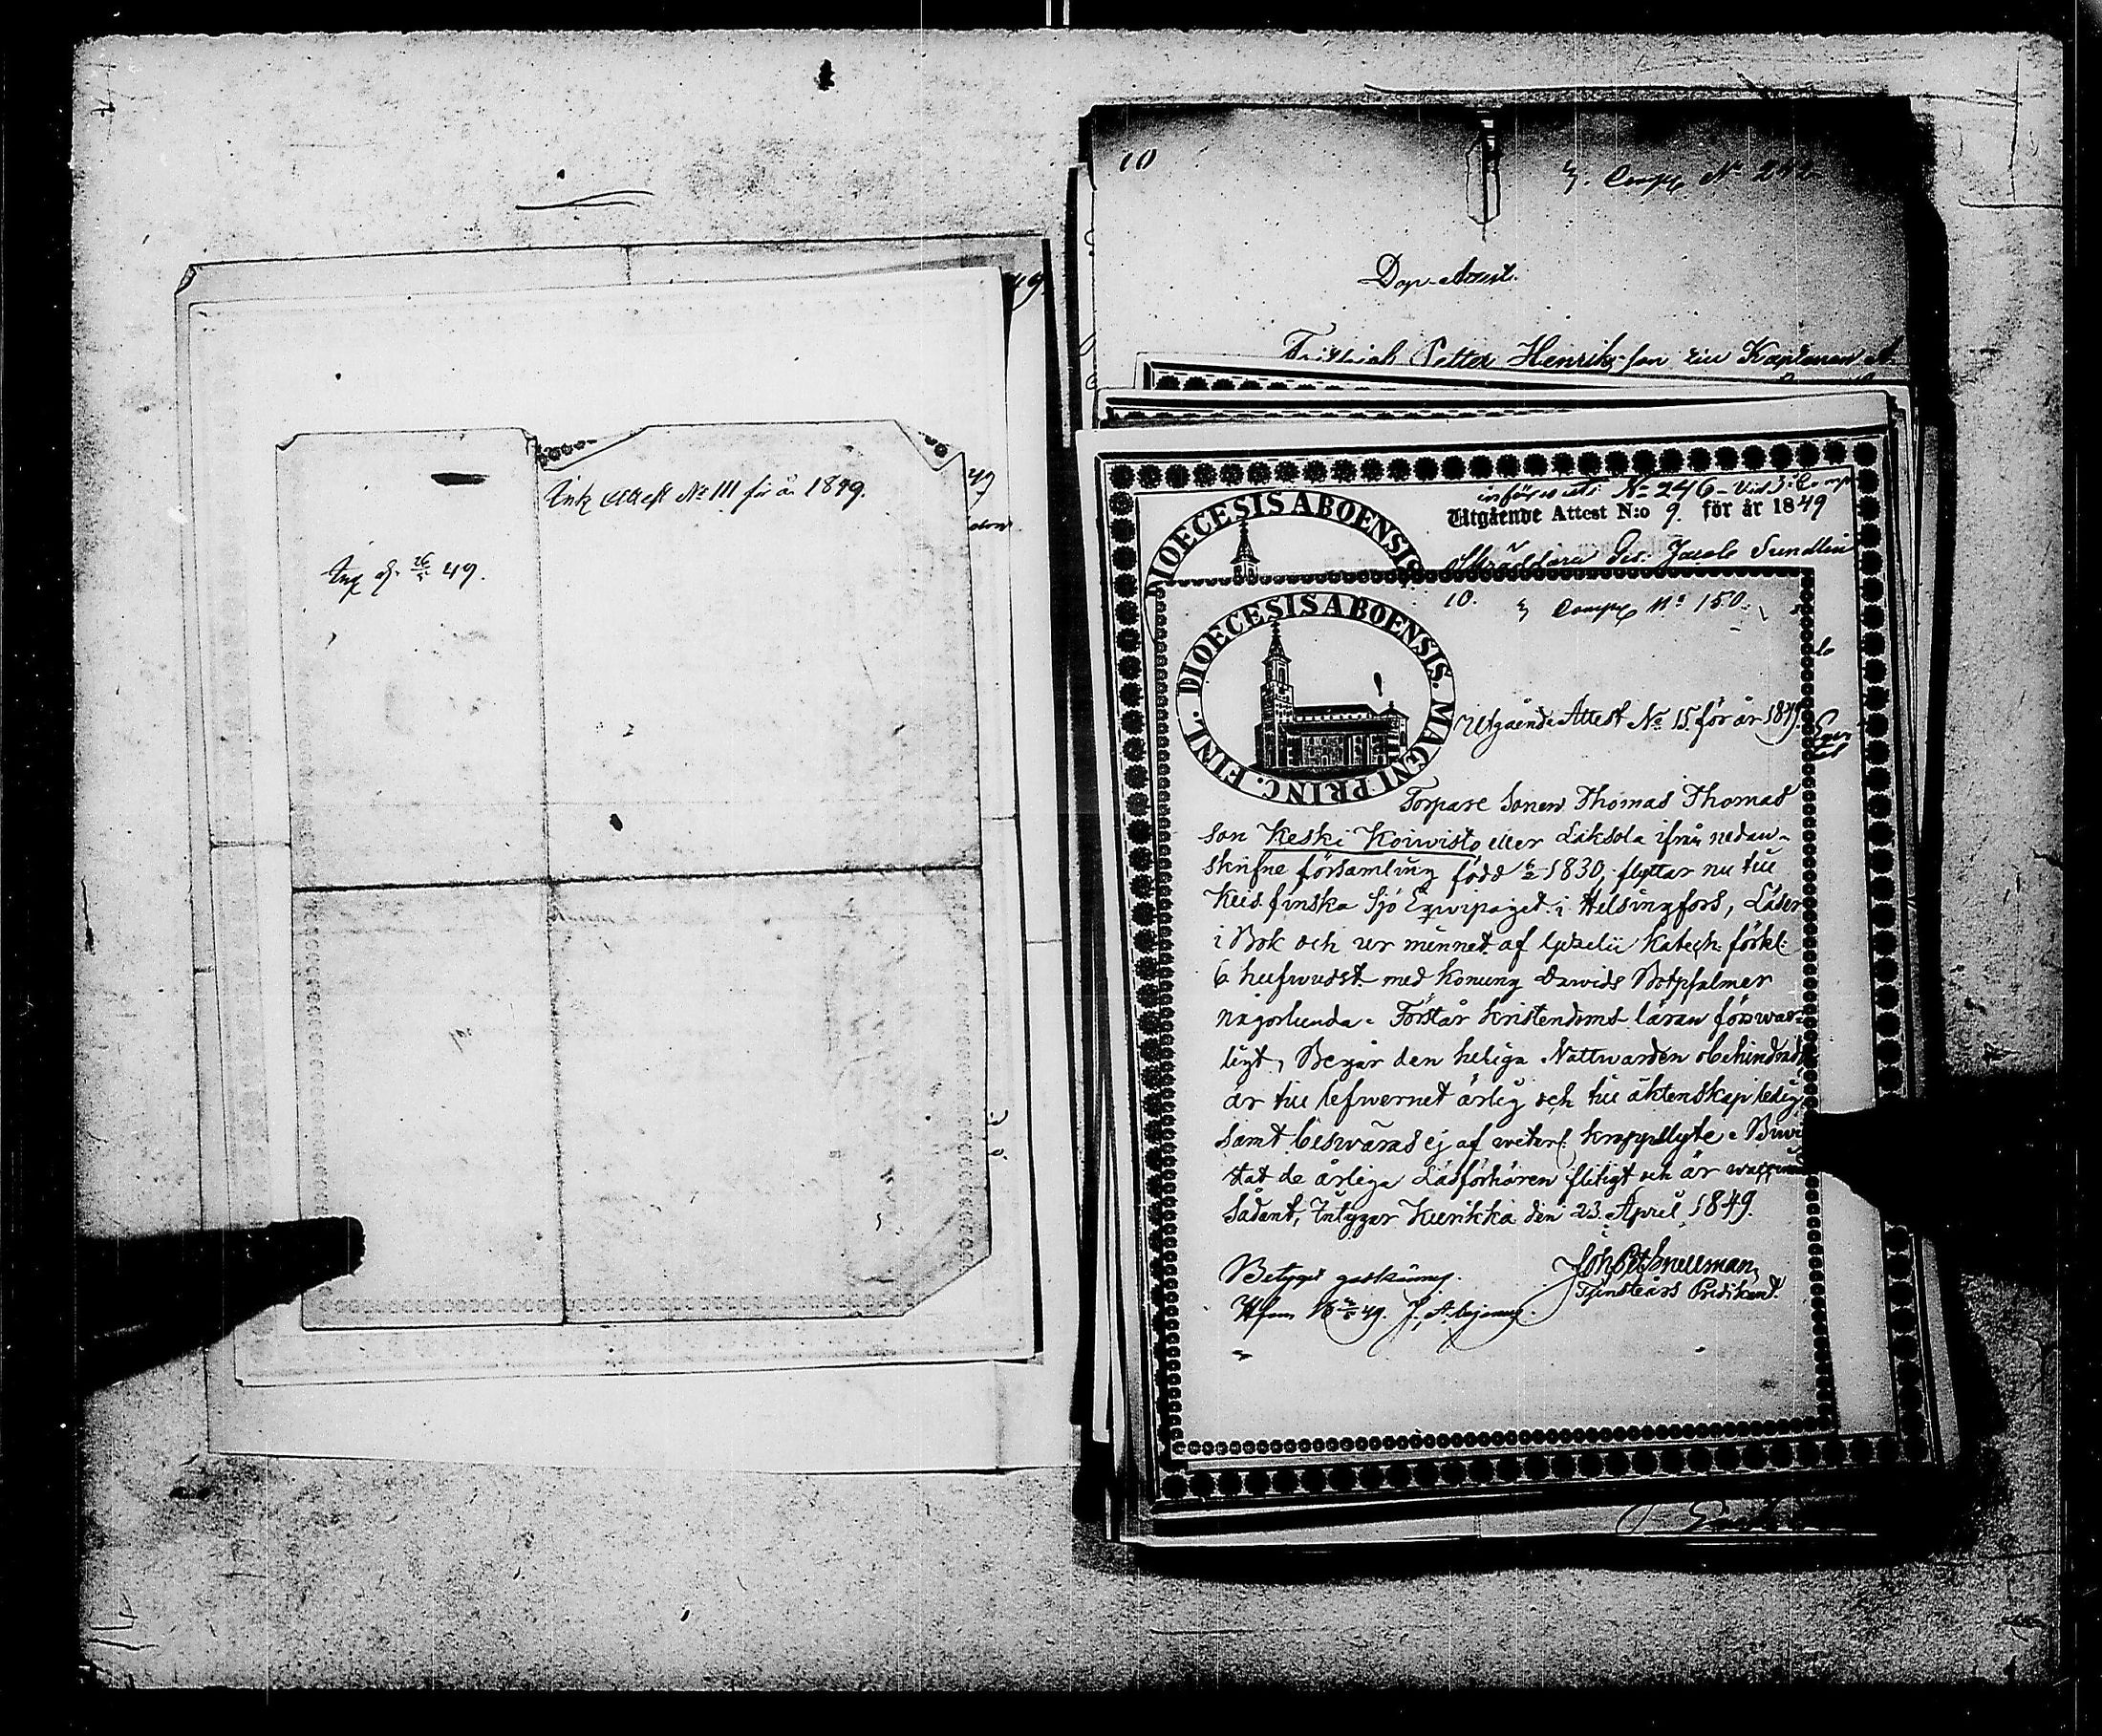 49
Ink Attest № 111 för år 1849.
49
Ink d. 26/5 49.
10
3. Comp № 242
Dop-Attest.
Fridrich Petter Henriksson till Kaptenen
införes № 246
Utgående Attest N:o 9. för år 1849
Skräddare Ges. Jacob Sundlin
DIOECESIS ABOENSIS
10. 3 Comp N:o 150.
DIOECESIS ABOENSIS. MAGNI PRINC. FINL.
Utgående Attest № 15 för år 1849.
Torpare Sonen Thomas Thomas
son Keski Koiwisto eller Laksola ifrån nedan-
skrifne församling född 1830, flyttar nu till
Keis. finska Sjö Eqwipaget i Helsingfors, Läser
i Bok och ur minnet af Katech. förkl.
6 hufwudst. med Konung Dawids Botpsalmer
någorlunda. Förstår Kristendoms-läran förswar-
ligt, Begår den heliga Nattwarden obehindrad
är till lefwernet ärlig och till äktenskap ledig
samt beswäras ej af kroppslyte. Biwi
stat de årliga Läsförhören flitigt och är waccine
Sådant, Intygar Kurikka den 23 April 1849.
Joh Pet Snellman,
Tjenstears Predikant.
Betyget godkännes.
Hfors 49.